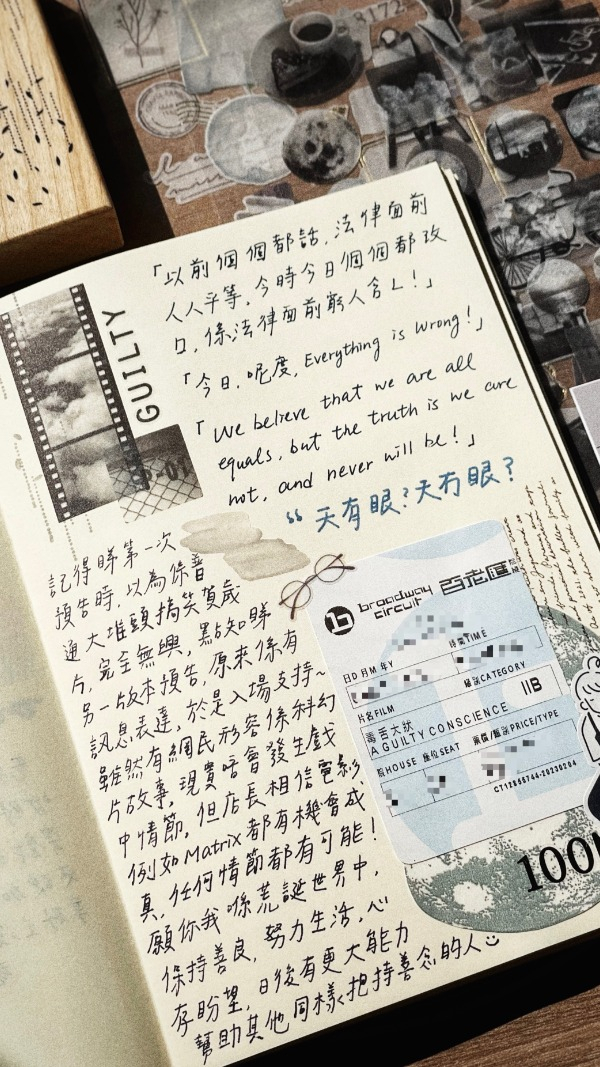 「以前個個都話，法律面前
人人平等，今時今日個個都改
口，係法律面前窮人含L！」
「今日，呢度，Everything is Wrong！」
「We believe that we are all
equals, but the truth is we are
not, and never will be！」
“天有眼？天冇眼？
GUILTY
記得睇第一次
預告時，以為係普
通大堆頭搞笑賀歲
片，完全無興，點知睇
另一版本預告，原來係有
訊息表達，於是入場支持~
雖然有網民形容係科幻
片故事，現實唔會發生戲
中情節，但店長相信電影
例如Matrix都有機會成
真，任何情節都有可能！
願你我喺荒誕世界中，
保持善良，努力生活，心
存盼望，日後有更大能力
幫助其他同樣把持善念的人
broadway
circuit 百老匯院線
日D 月M 年Y
時間TIME
片名FILM
級別CATEGORY IIB
毒舌大狀
A GUILTY CONSCIENCE
院HOUSE 座位SEAT 票價/類別PRICE/TYPE
CT12855744-20230204
100%